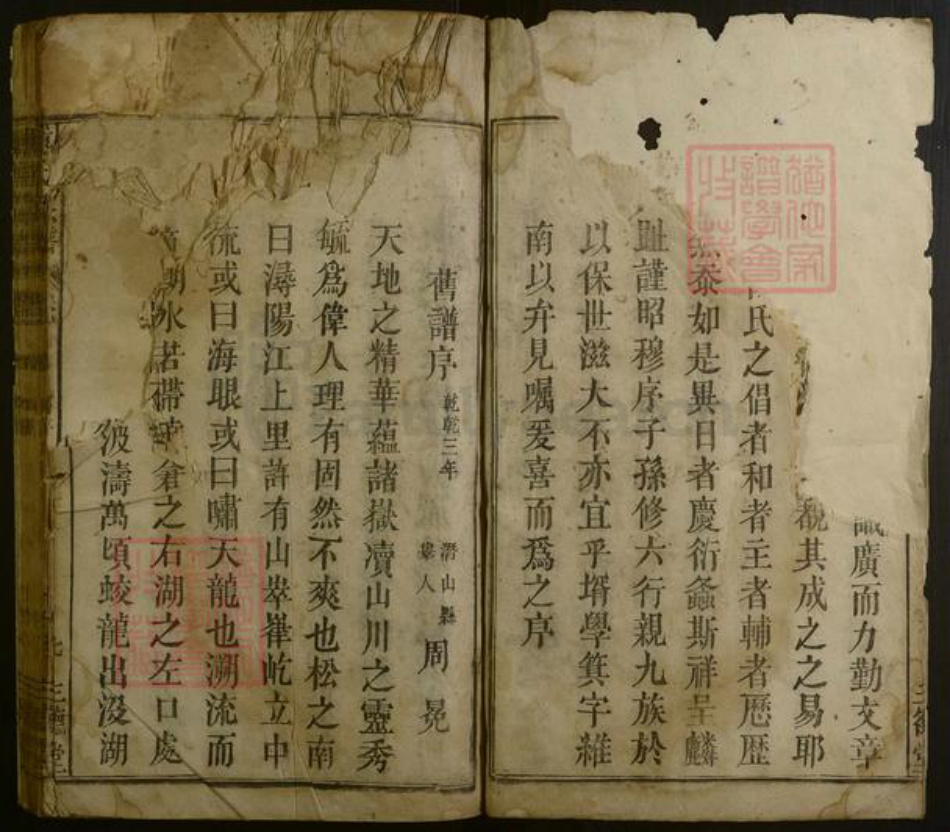 識廣而力勤文章
觀其成之之易耶
氏之倡者和者主者輔者歷歷
無忝如是異日者慶衍螽斯祥呈麟
趾謹昭穆序子孫修六行親九族於
以保世滋大不亦宜乎壻學箕字維
南以弁見囑爰喜而爲之序
舊譜序 乾乾三年 潛山縣 舉人 周冕
天地之精華蘊諸嶽瀆山川之靈秀
毓爲偉人理有固然不爽也松之南
曰潯陽江上里許有山崒嵂屹立中
流或曰海眼或曰嘯天龍也溯流而
湖水若帶 倉之右湖之左口處
波濤萬頃蛟龍出沒湖
七
三德堂